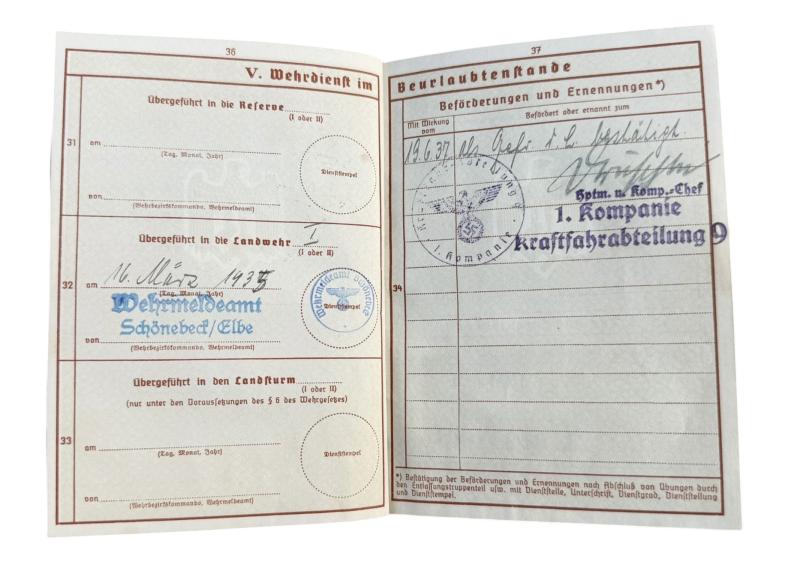 36
V. Wehrdienst im
Übergeführt in die Reserve
(I oder II)
31
am
(Tag, Monat, Jahr)
Dienststempel
von
(Wehrbezirkskommando, Wehrmeldeamt)
Übergeführt in die Landwehr I
(I oder II)
32
am 16. März 1935
(Tag, Monat, Jahr)
Wehrmeldeamt
Schönebeck/Elbe
Wehrmeldeamt
Dienststempel
von
(Wehrbezirkskommando, Wehrmeldeamt)
Übergeführt in den Landsturm
(I oder II)
(nur unter den Voraussetzungen des § 6 des Wehrgesetzes)
33
am
(Tag, Monat, Jahr)
Dienststempel
von
(Wehrbezirkskommando, Wehrmeldeamt)
37
Beurlaubtenstande
Beförderungen und Ernennungen*)
Mit Wirkung vom
Befördert oder ernannt zum
19.6.37 als Gefr. d. L. bestätigt.
Hptm. u. Komp.-Chef
1. Kompanie
Kraftfahrabteilung 9
1. Kompanie
34
*) Bestätigung der Beförderungen und Ernennungen nach Abschluß von Übungen durch
den Entlassungstruppenteil usw. mit Dienststelle, Unterschrift, Dienstgrad, Dienststellung
und Dienststempel.